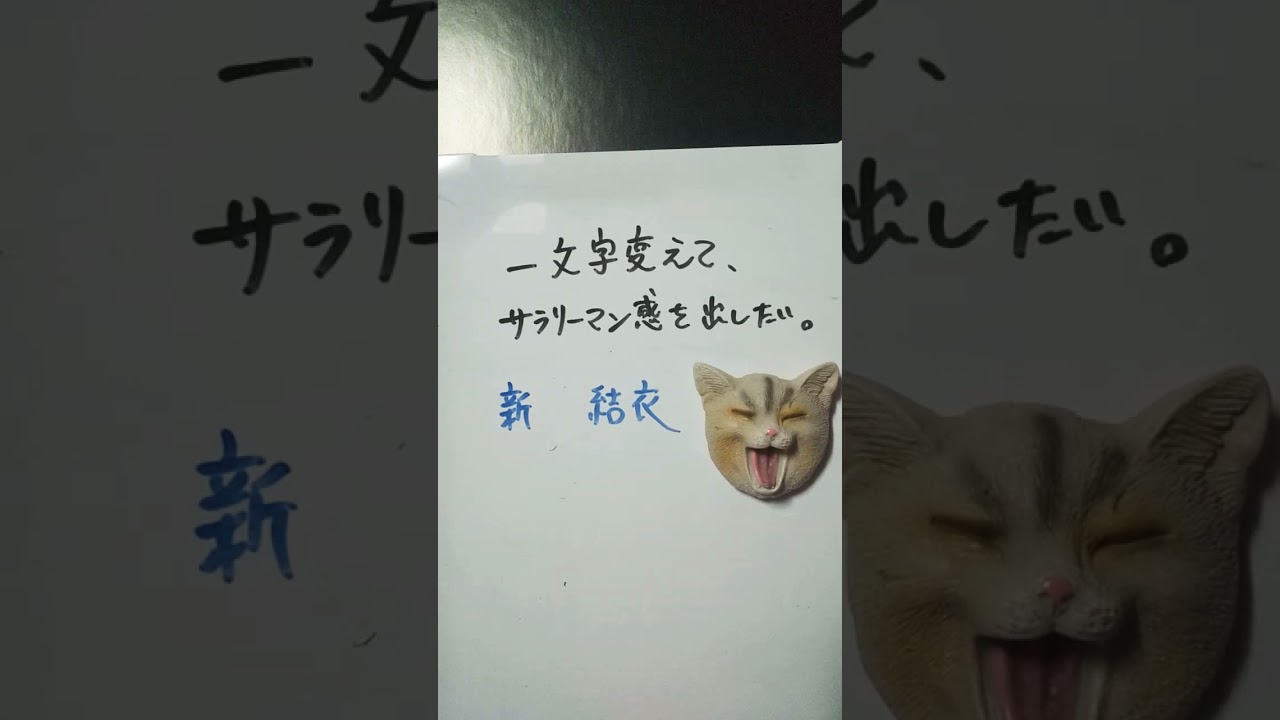 一文字変えて、
サラリーマン感を出したい。
新　結衣